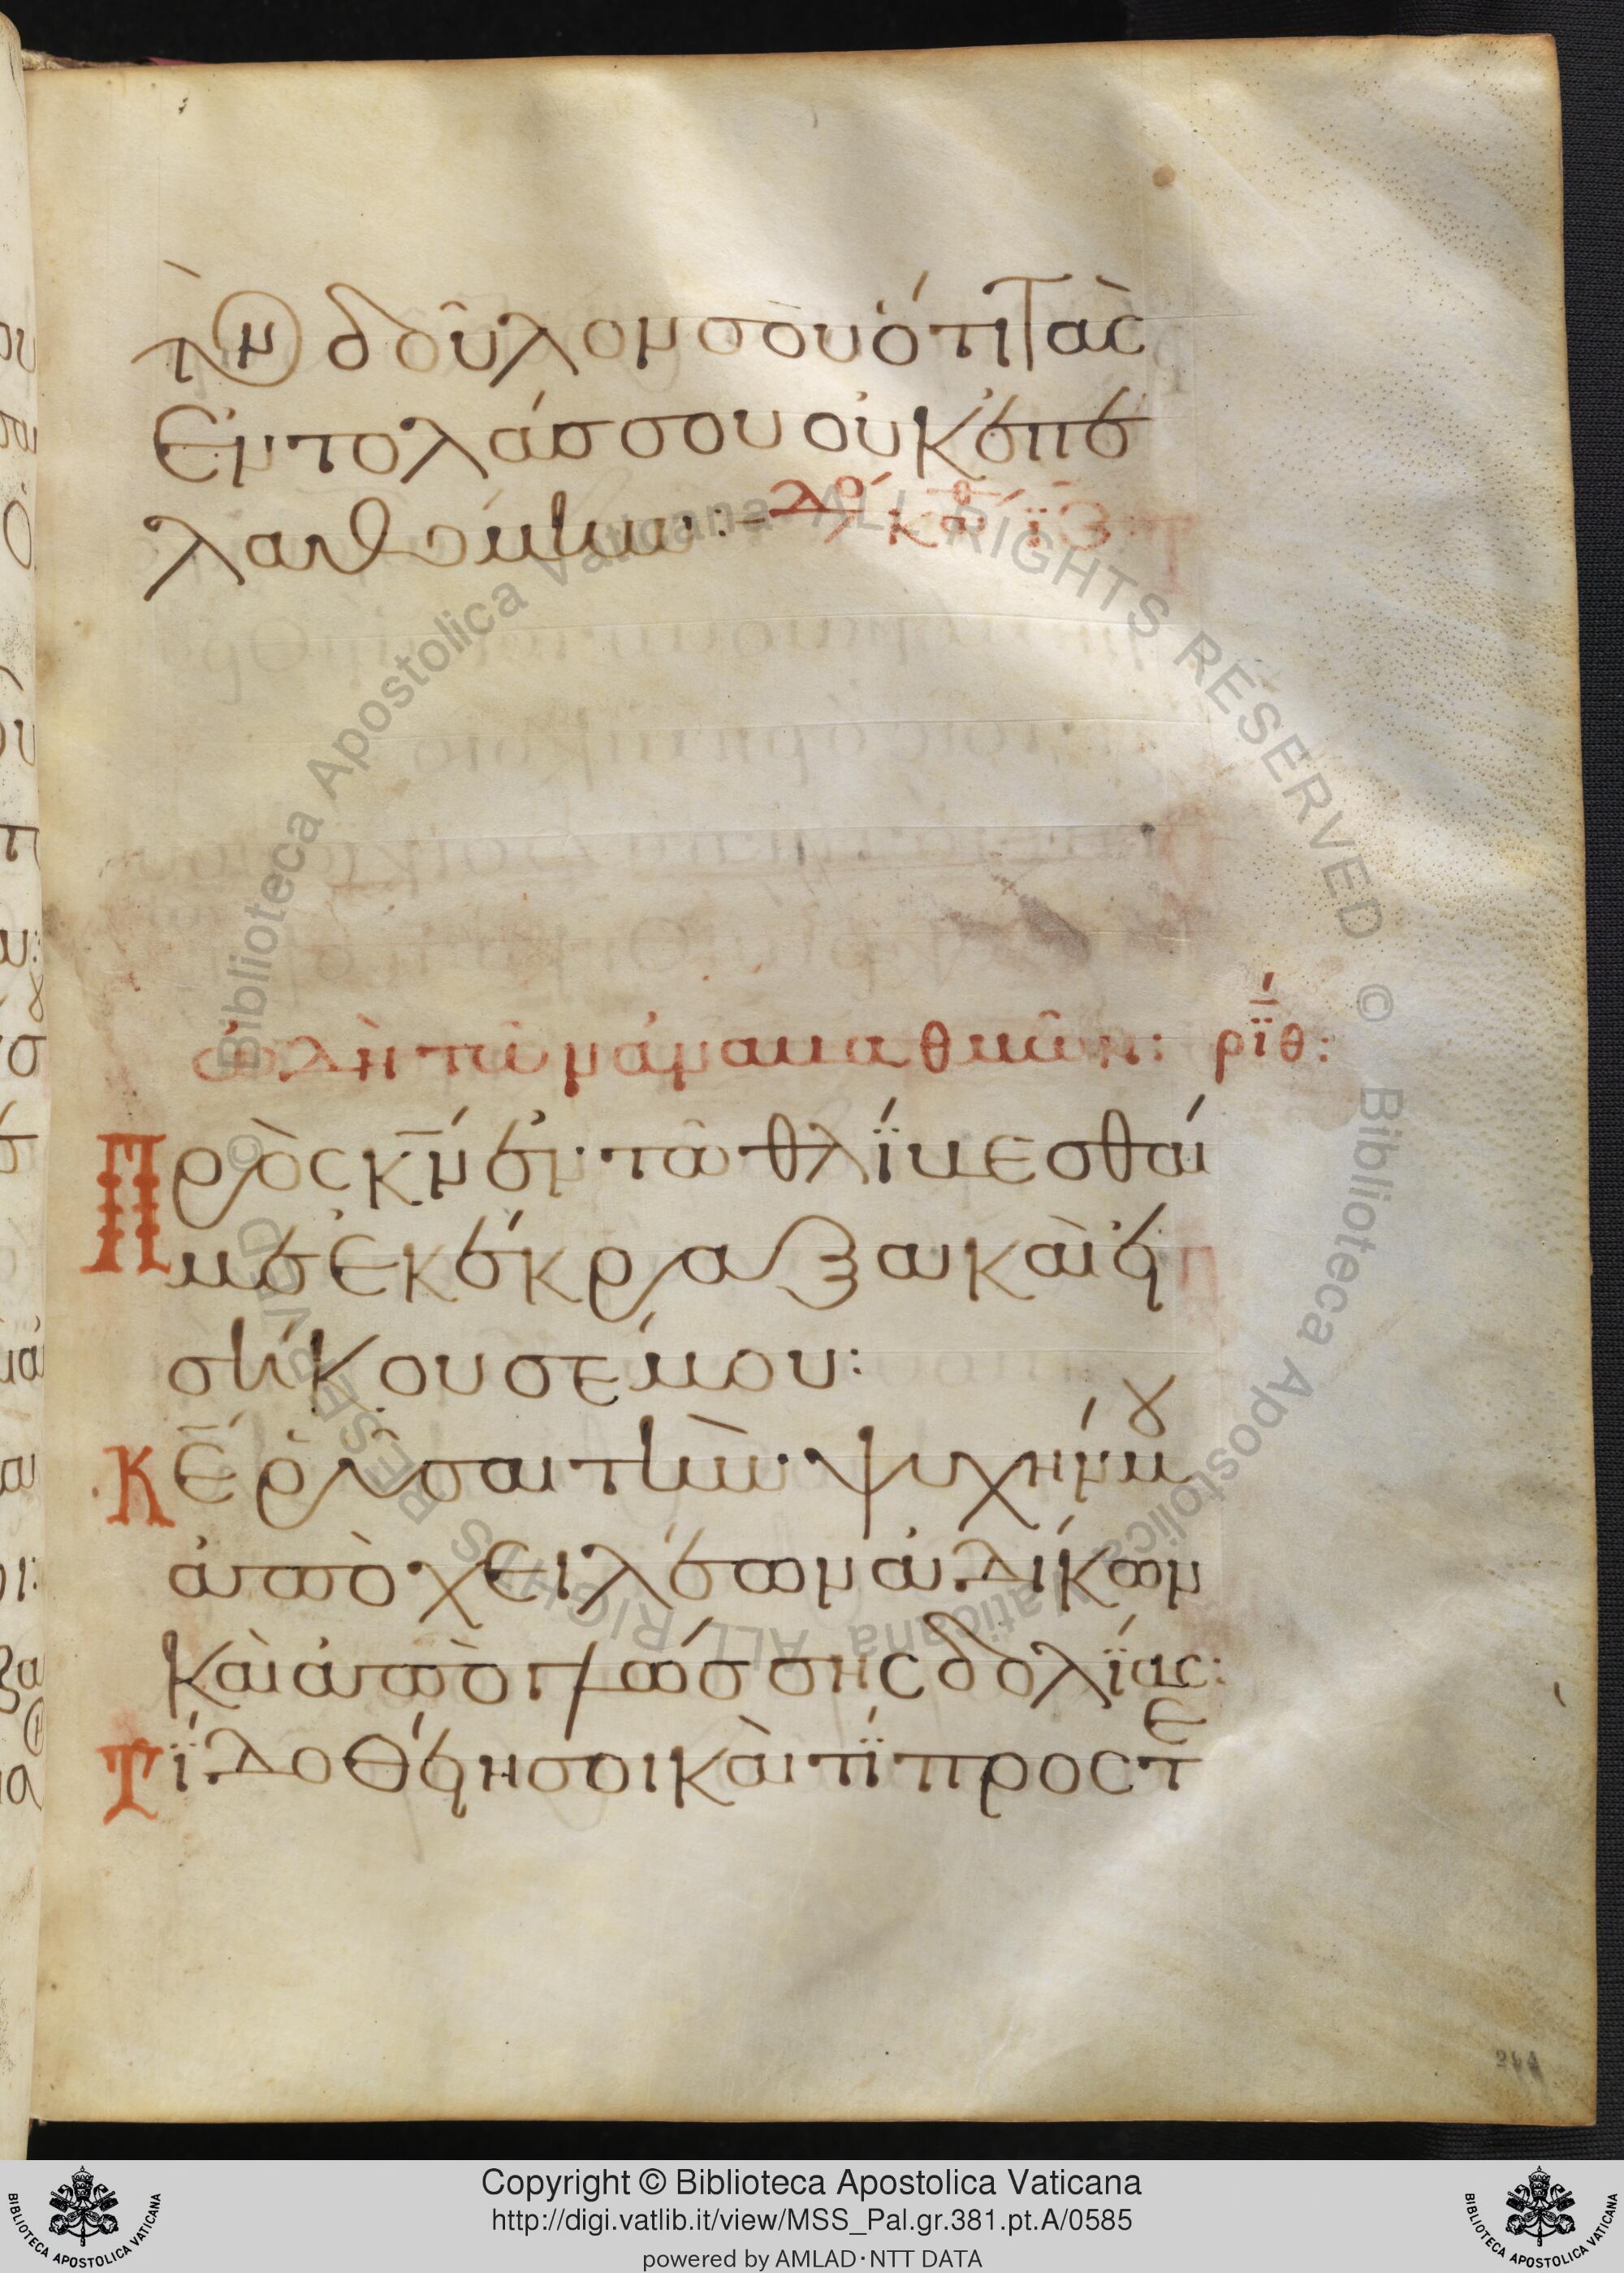 τὸν δοῦλον σου ὅτι τὰς
ἐντολάς σου οὐκ ἐπε
λαθόμην:-
ὠδὴ τῶν ἀναβαθμῶν: ριθ:
Πρὸς κν ἐν τῶ θλίβεσθαί
με ἐκέκραξα καὶ εἰ
σήκουσέ μου:
Κε ῥῦσαι τὴν ψυχήν μου
ἀπὸ χειλέων ἀδίκων
καὶ ἀπὸ γλώσσης δολίας:
Τί δοθείη σοι καὶ τί προστε
244
© Biblioteca Apostolica Vaticana ALL RIGHTS RESERVED © Biblioteca Apostolica Vaticana ALL RIGHTS RESERVED
Copyright © Biblioteca Apostolica Vaticana
http://digi.vatlib.it/view/MSS_Pal.gr.381.pt.A/0585
powered by AMLAD·NTT DATA
BIBLIOTECA APOSTOLICA VATICANA
BIBLIOTECA APOSTOLICA VATICANA